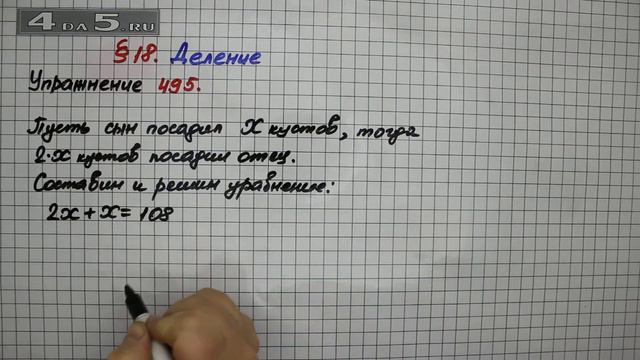 4DA5.RU
§ 18. Деление
Упражнение 495.
Пусть сын посадил x кустов, тогда
2·x кустов посадил отец.
Составим и решим уравнение:
2x + x = 108